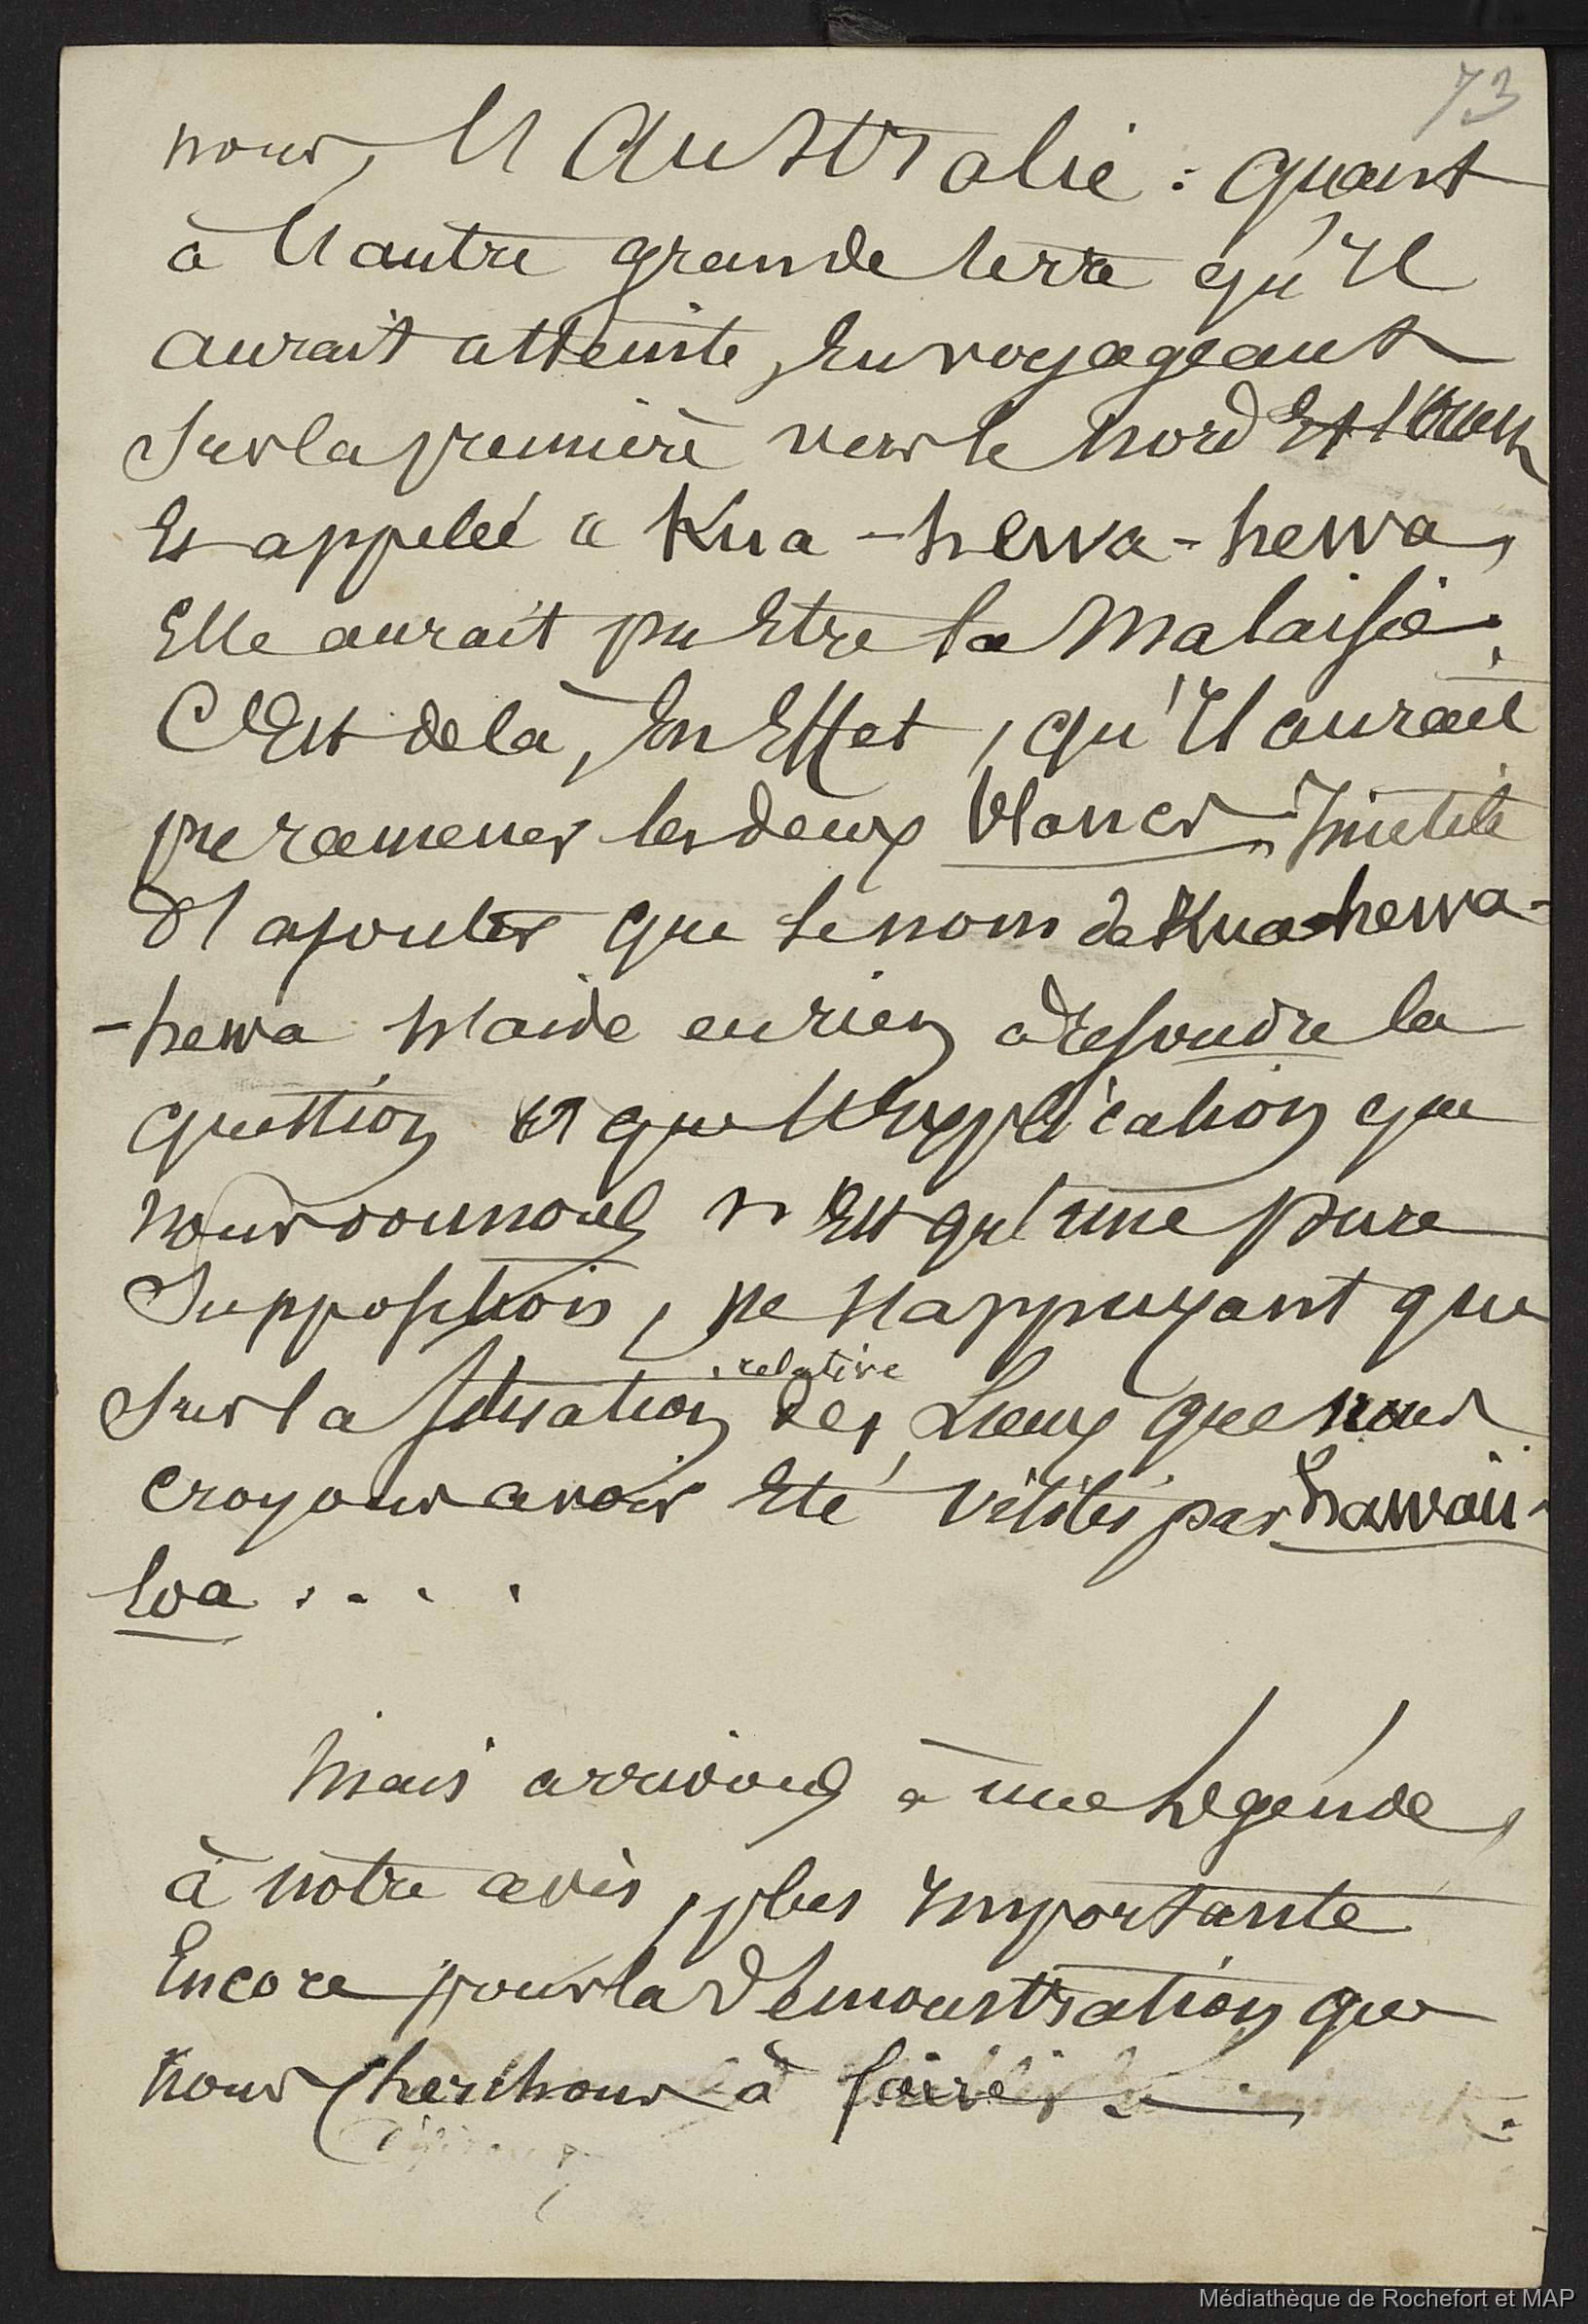 73
nous, l'Australie : quant
à l'autre grande terre qu'il
aurait atteinte, En voyageant
Sur la première vers le Nord Et l'ouest
Es appelée " Kua-hewa-hewa,
Elle aurait pu Etre la Malaisie.
C'Est de là, En Effet, qu'Il aurait
pu ramener les deux blancs. Inutile
d'ajouter que le nom de Kua-hewa-
-hewa n'aide en rien à résoudre la
question Et que l'Explication que
nous donnons n'Est qu'une pure
Supposition, ne s'appuyant que
Sur la Situation relative des Lieux que nous
croyons avoir Eté visités par hawaii-
loa . . . .
Mais arrivons à une légende,
à notre avis, plus Importante
Encore pour la Démonstration que
nous cherchons à faire.
Médiathèque de Rochefort et MAP